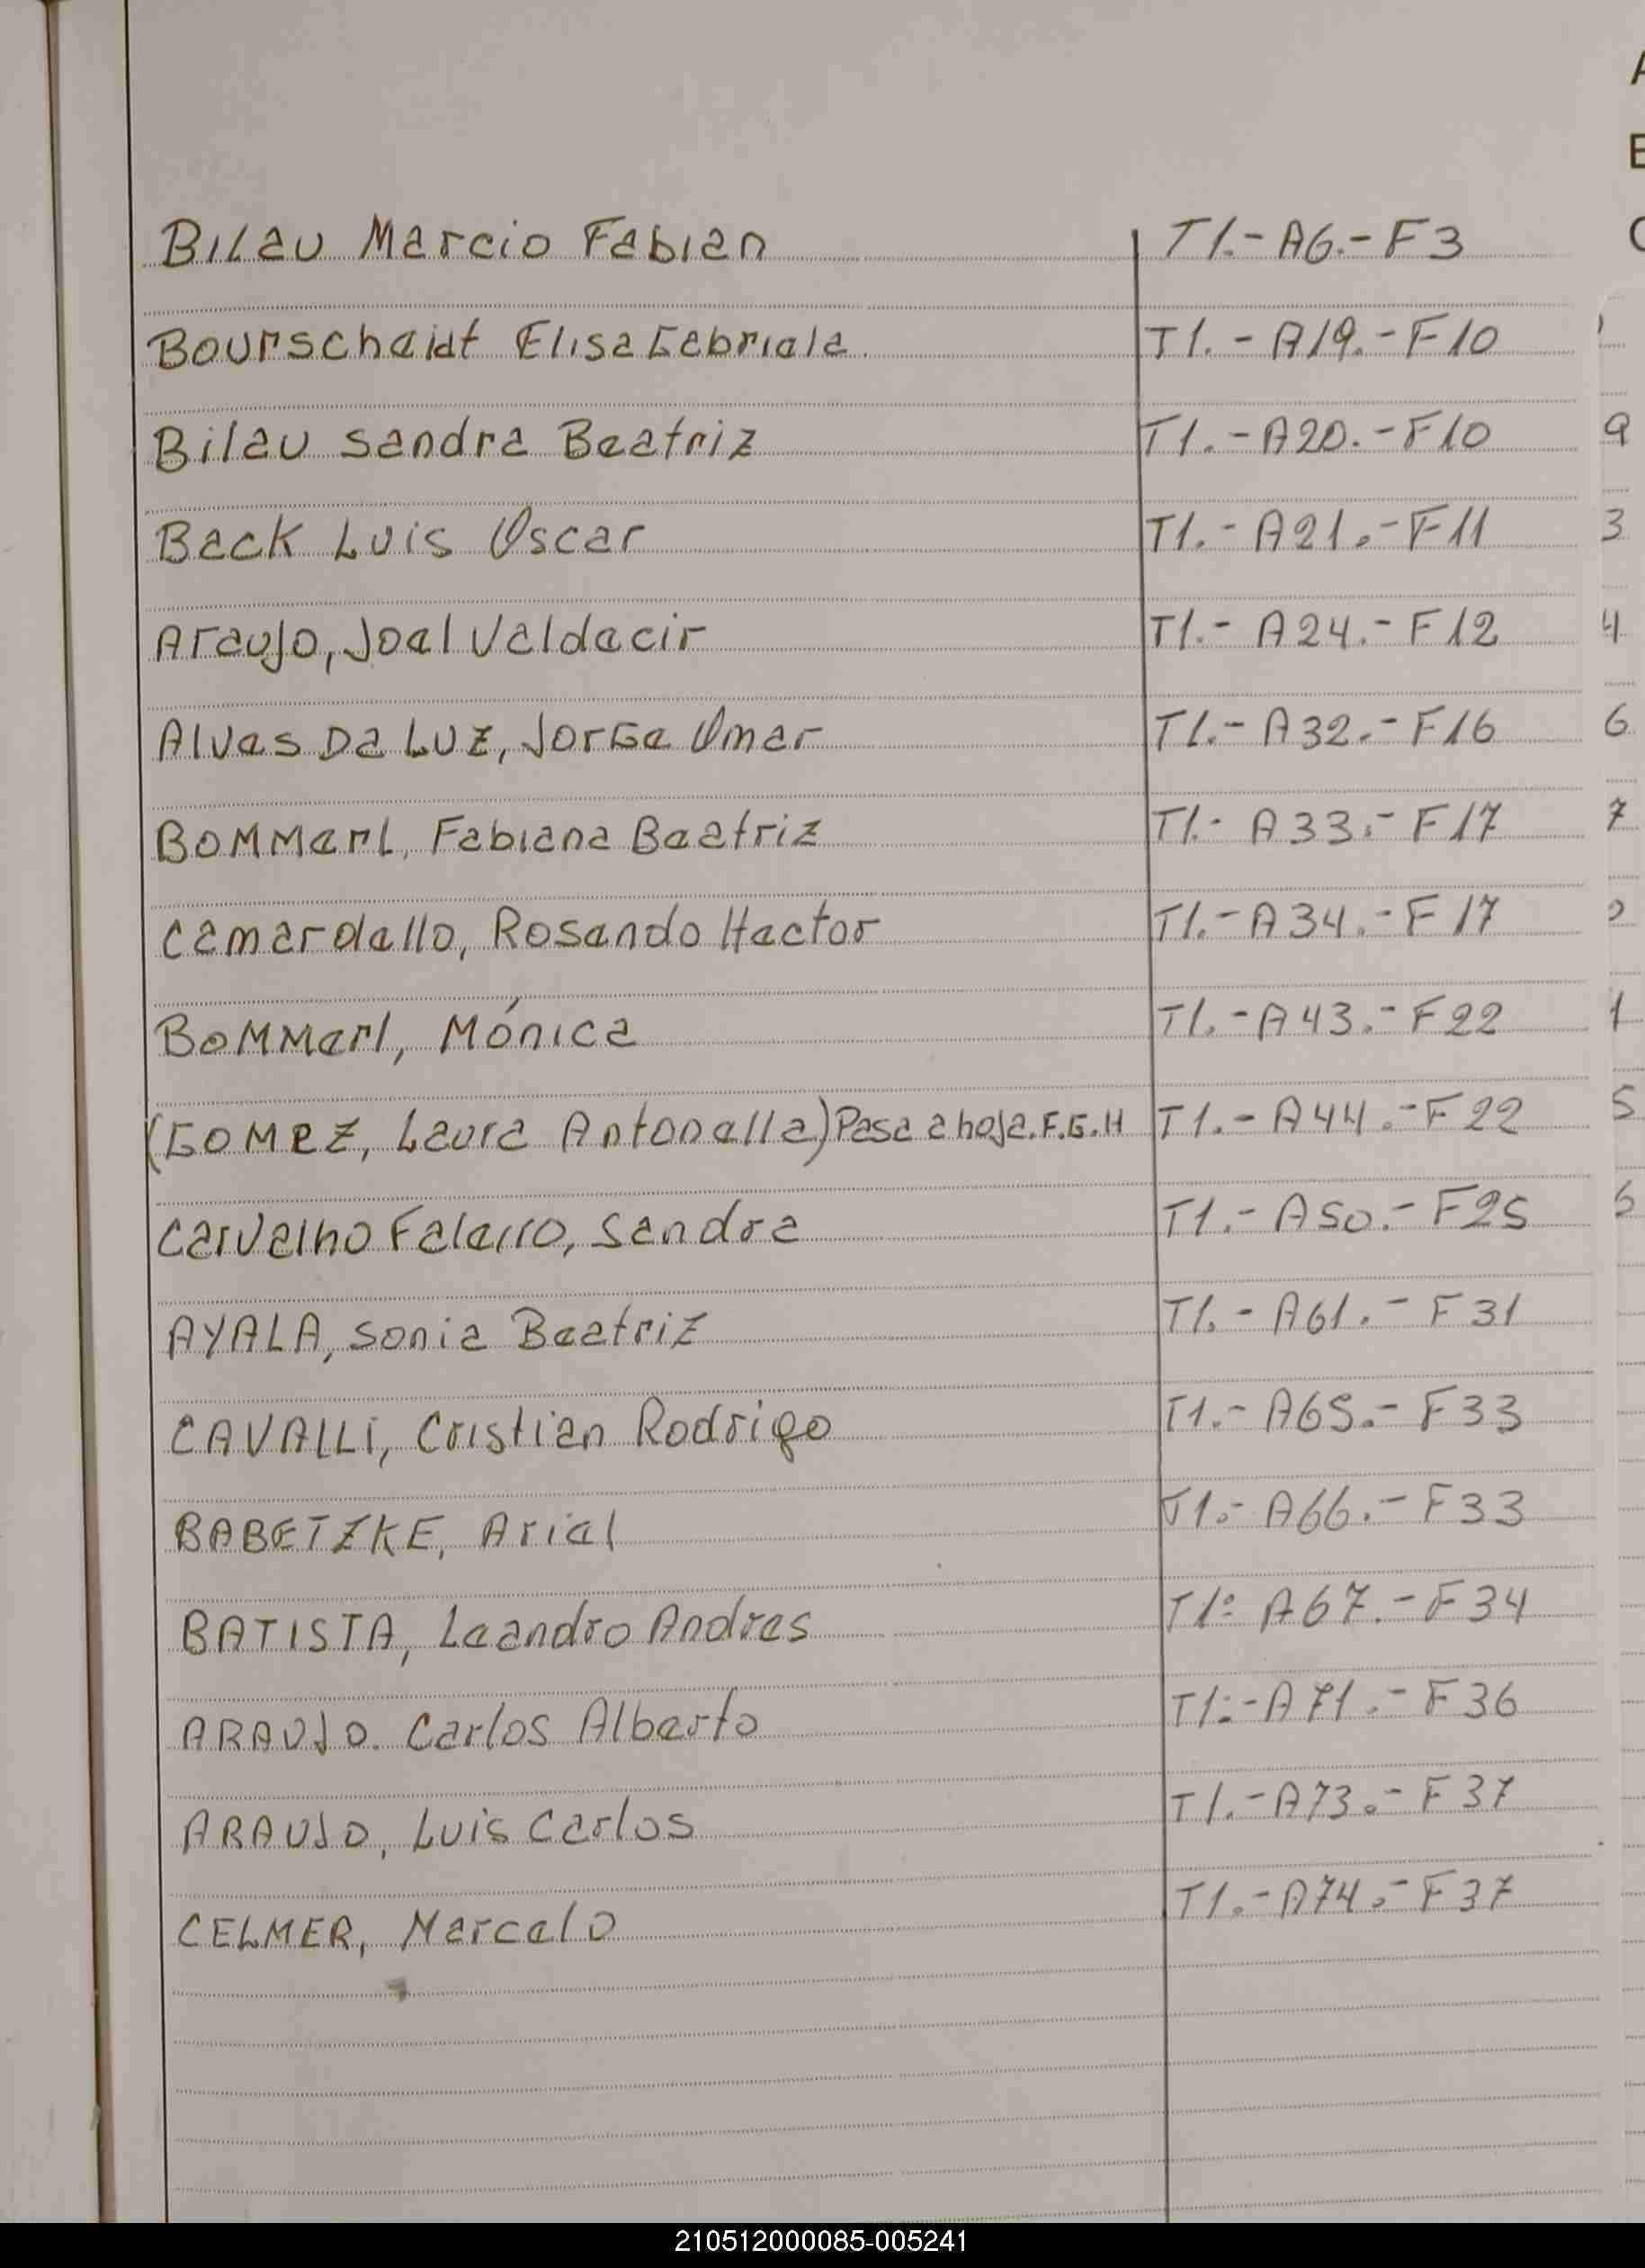 Bilau Marcio Fabian T1.- A6.- F3
Bourscheidt Elisa Gabriela. T1.- A19.- F10
Bilau Sandra Beatriz T1.- A20.- F10
Beck Luis Oscar T1.- A21.- F11
Araujo, Joel Valdecir T1.- A24.- F12
Alves Da Luz, Jorge Omar T1.- A32.- F16
BOMMerl, Fabiana Beatriz T1.- A33.- F17
Camardello, Rosendo Hector T1.- A34.- F17
BoMMerl, Mónica T1.- A43.- F22
(GOMEZ, Laura Antonella) Pasa a hoja. F.G.H T1.- A44.- F22
Carvalho Faleiro, Sandra T1.- A50.- F25
AYALA, Sonia Beatriz T1.- A61.- F31
CAVALLi, Cristian Rodrigo T1.- A65.- F33
BABETZKE, Ariel T1.- A66.- F33
BATISTA, Leandro Andres T1.- A67.- F34
ARAUJO. Carlos Alberto T1.- A71.- F36
ARAUJO, Luis Carlos T1.- A73.- F37
CELMER, Marcelo T1.- A74.- F37
210512000085-005241